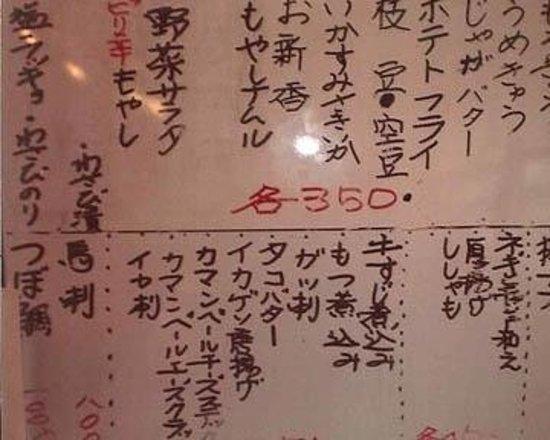 うめきゅう
じゃがバター
ポテトフライ
枝豆・空豆
いかすみさきいか
お新香
もやしナムル
野菜サラダ
ピリ辛もやし
わさび漬
塩ラッキョ・わさびのり
各350.
厚揚げ
ししゃも
牛すじ煮込み
もつ煮込み
ガツ刺
タコバター
イカゲソ唐揚げ
カマンベールチーズステック
カマンベールチーズクラッ
イカ刺
馬刺
つぼ鯛